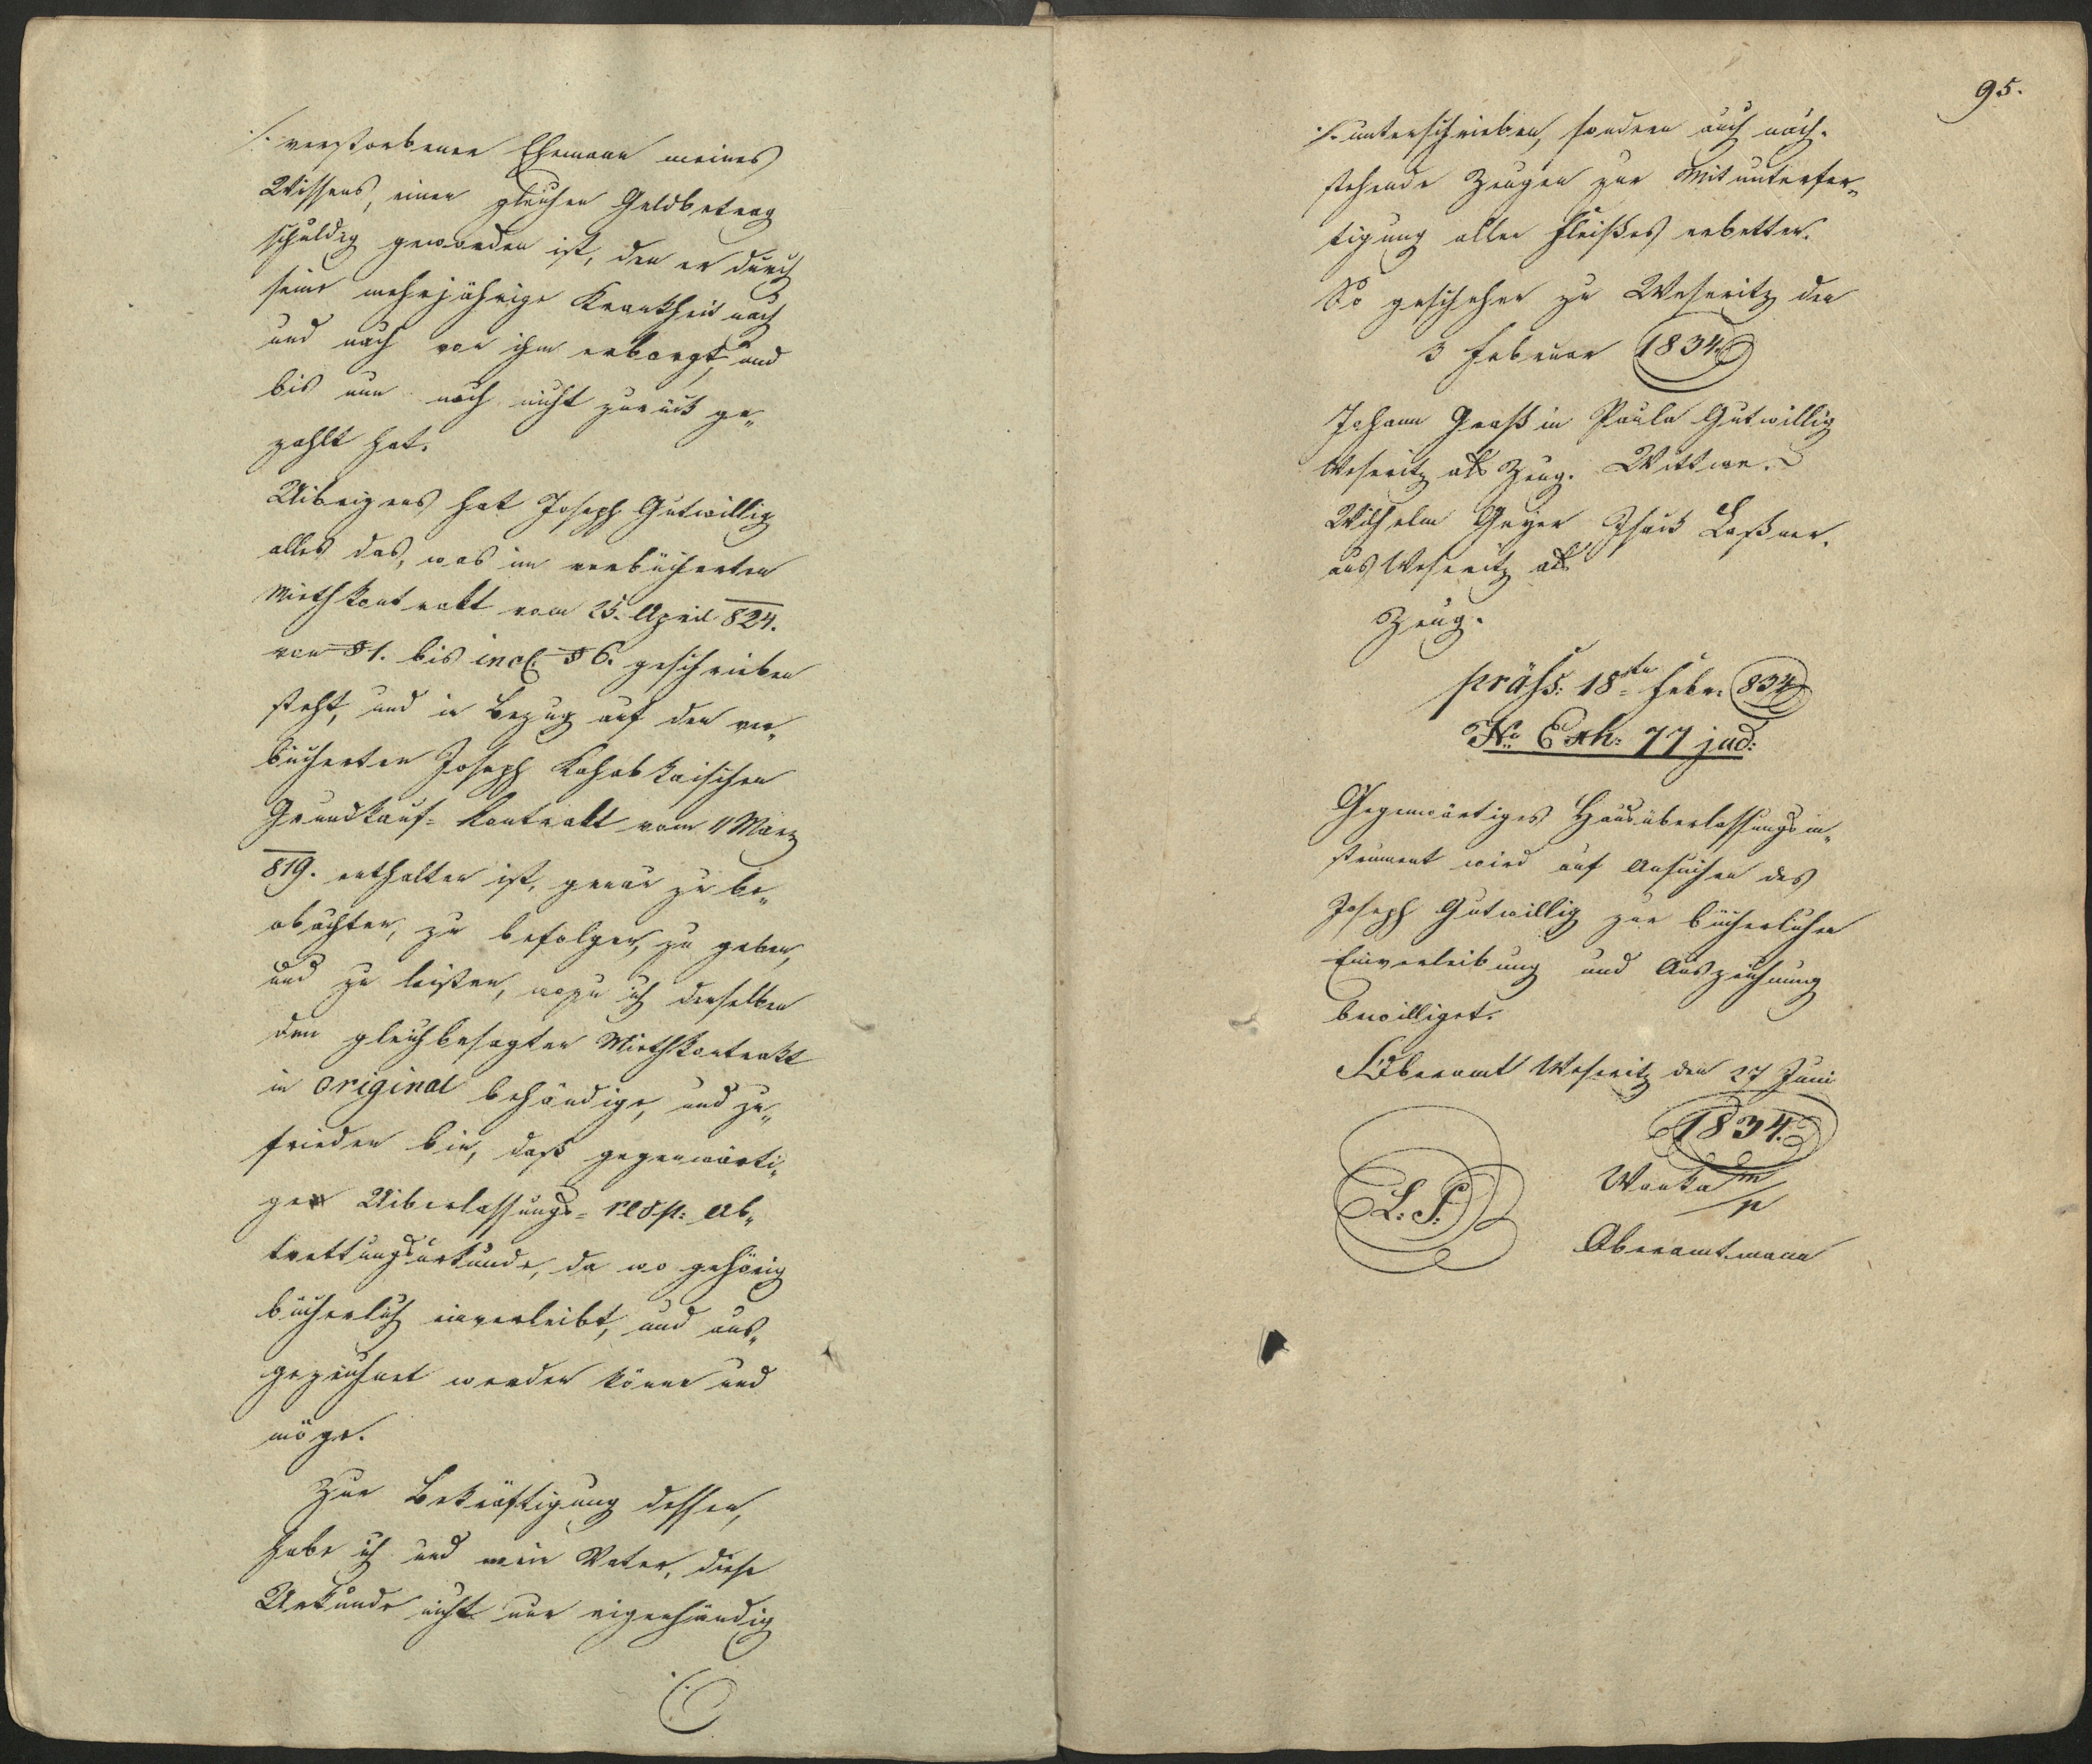 ./. verstorbener Ehemann meines
Wissens, einen gleichen Geldbetrag
schuldig geworden ist, den er durch
seine mehrjährige Krankheit nach
und nach von ihm erborgt, und
bis nun noch nicht zurück ge„
zahlt hat.
Uibrigens hat Joseph Gutwillig
alles das, was im verbücherten
Miethkontrakt vom 25. April 824.
von § 1. bis incl. § 6. geschrieben
steht, und in Bezug auf den ver„
bücherten Joseph
Grundkauf- Kontrakt vom 11 März
819. enthalten ist, genau zu be„
obachten, zu befolgen, zu geben,
und zu leisten, wozu ich denselben
den gleichbesagten Miethkontrakt
in original behändige, und zu„
frieden bin, daß gegenwärti„
ge Uiberlassungs- resp: Ab„
trettungsurkunde, da wo gehörig
bücherlich einverleibt, und aus„
gezeichnet werden könne und
möge.
Zur Bekräftigung dessen,
habe ich und mein Vater, diese
Urkunde nicht nur eigenhändig
95.
./. unterschrieben, sondern auch nach-
stehende Zeugen zur Mitunterfer„
tigung allen Fleißes erbetten.
So geschehen zu Weseritz den
3 Februar 1834.
Johann Graß in Paula Gutwillig
Weseritz als Zeug. Wittwe.
Wilhelm Geyer Isaak Laßner.
aus Weseritz als
Zeug.
präs: 18ten Febr: 834
No Exh: 77 jud:
Gegenwärtiges Hausüberlassungsin„
strument wird auf Ansuchen des
Joseph Gutwillig zur bücherlichen
Einverleibung und Auszeichnung
bewilliget.
Oberamt Weseritz den 27 Juni
1834.
L: S: Wanka m/p
Oberamtmann